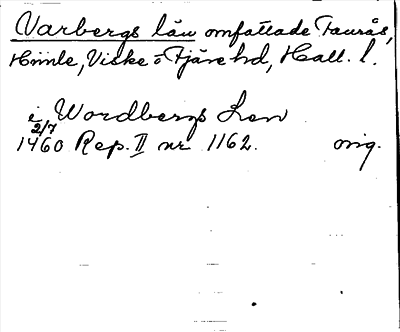 Varbergs län omfattade Faurås,
Himle, Viske o Fjäre hd, Hall. l.
i Wordbergs Len
2/7
1460 Rep. II nr 1162. orig.